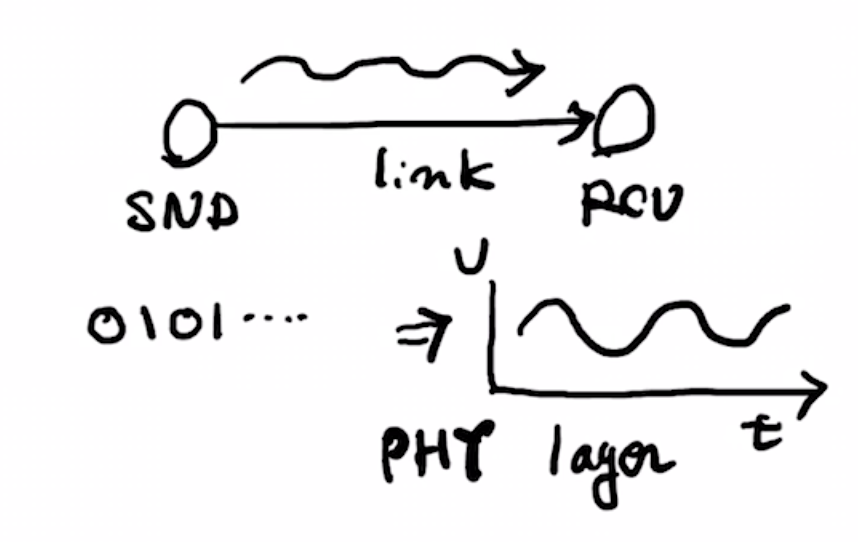 link
SND RCV
U
0101.... ⇒
t
PHY layer